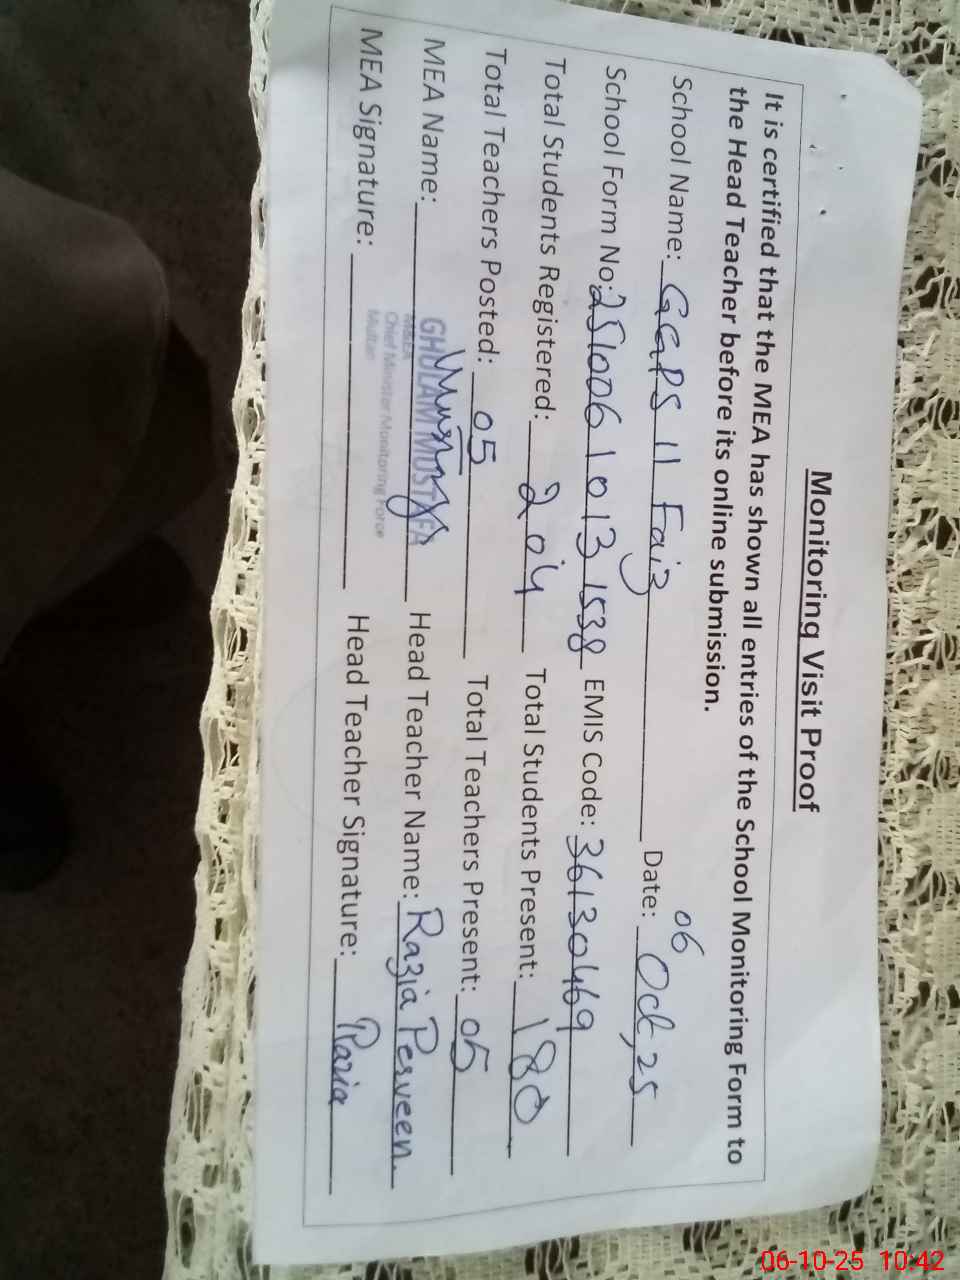 Monitoring Visit Proof
It is certified that the MEA has shown all entries of the School Monitoring Form to
the Head Teacher before its online submission.
School Name: GGPS 11 Faiz Date: 06 Oct, 25
School Form No: 25100610131538 EMIS Code: 36130469
Total Students Registered: 204 Total Students Present: 180
Total Teachers Posted: 05 Total Teachers Present: 05
MEA Name: GHULAM MUSTAFA Head Teacher Name: Razia Perveen
M&EA
Chief Minister Monitoring Force
Multan
MEA Signature: Head Teacher Signature: Razia
06-10-25 10:42